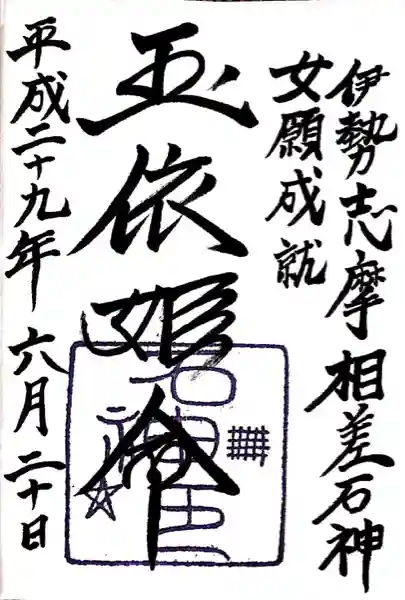 伊勢志摩相差石神
女願成就
玉依姫命
平成二十九年 六月二十日